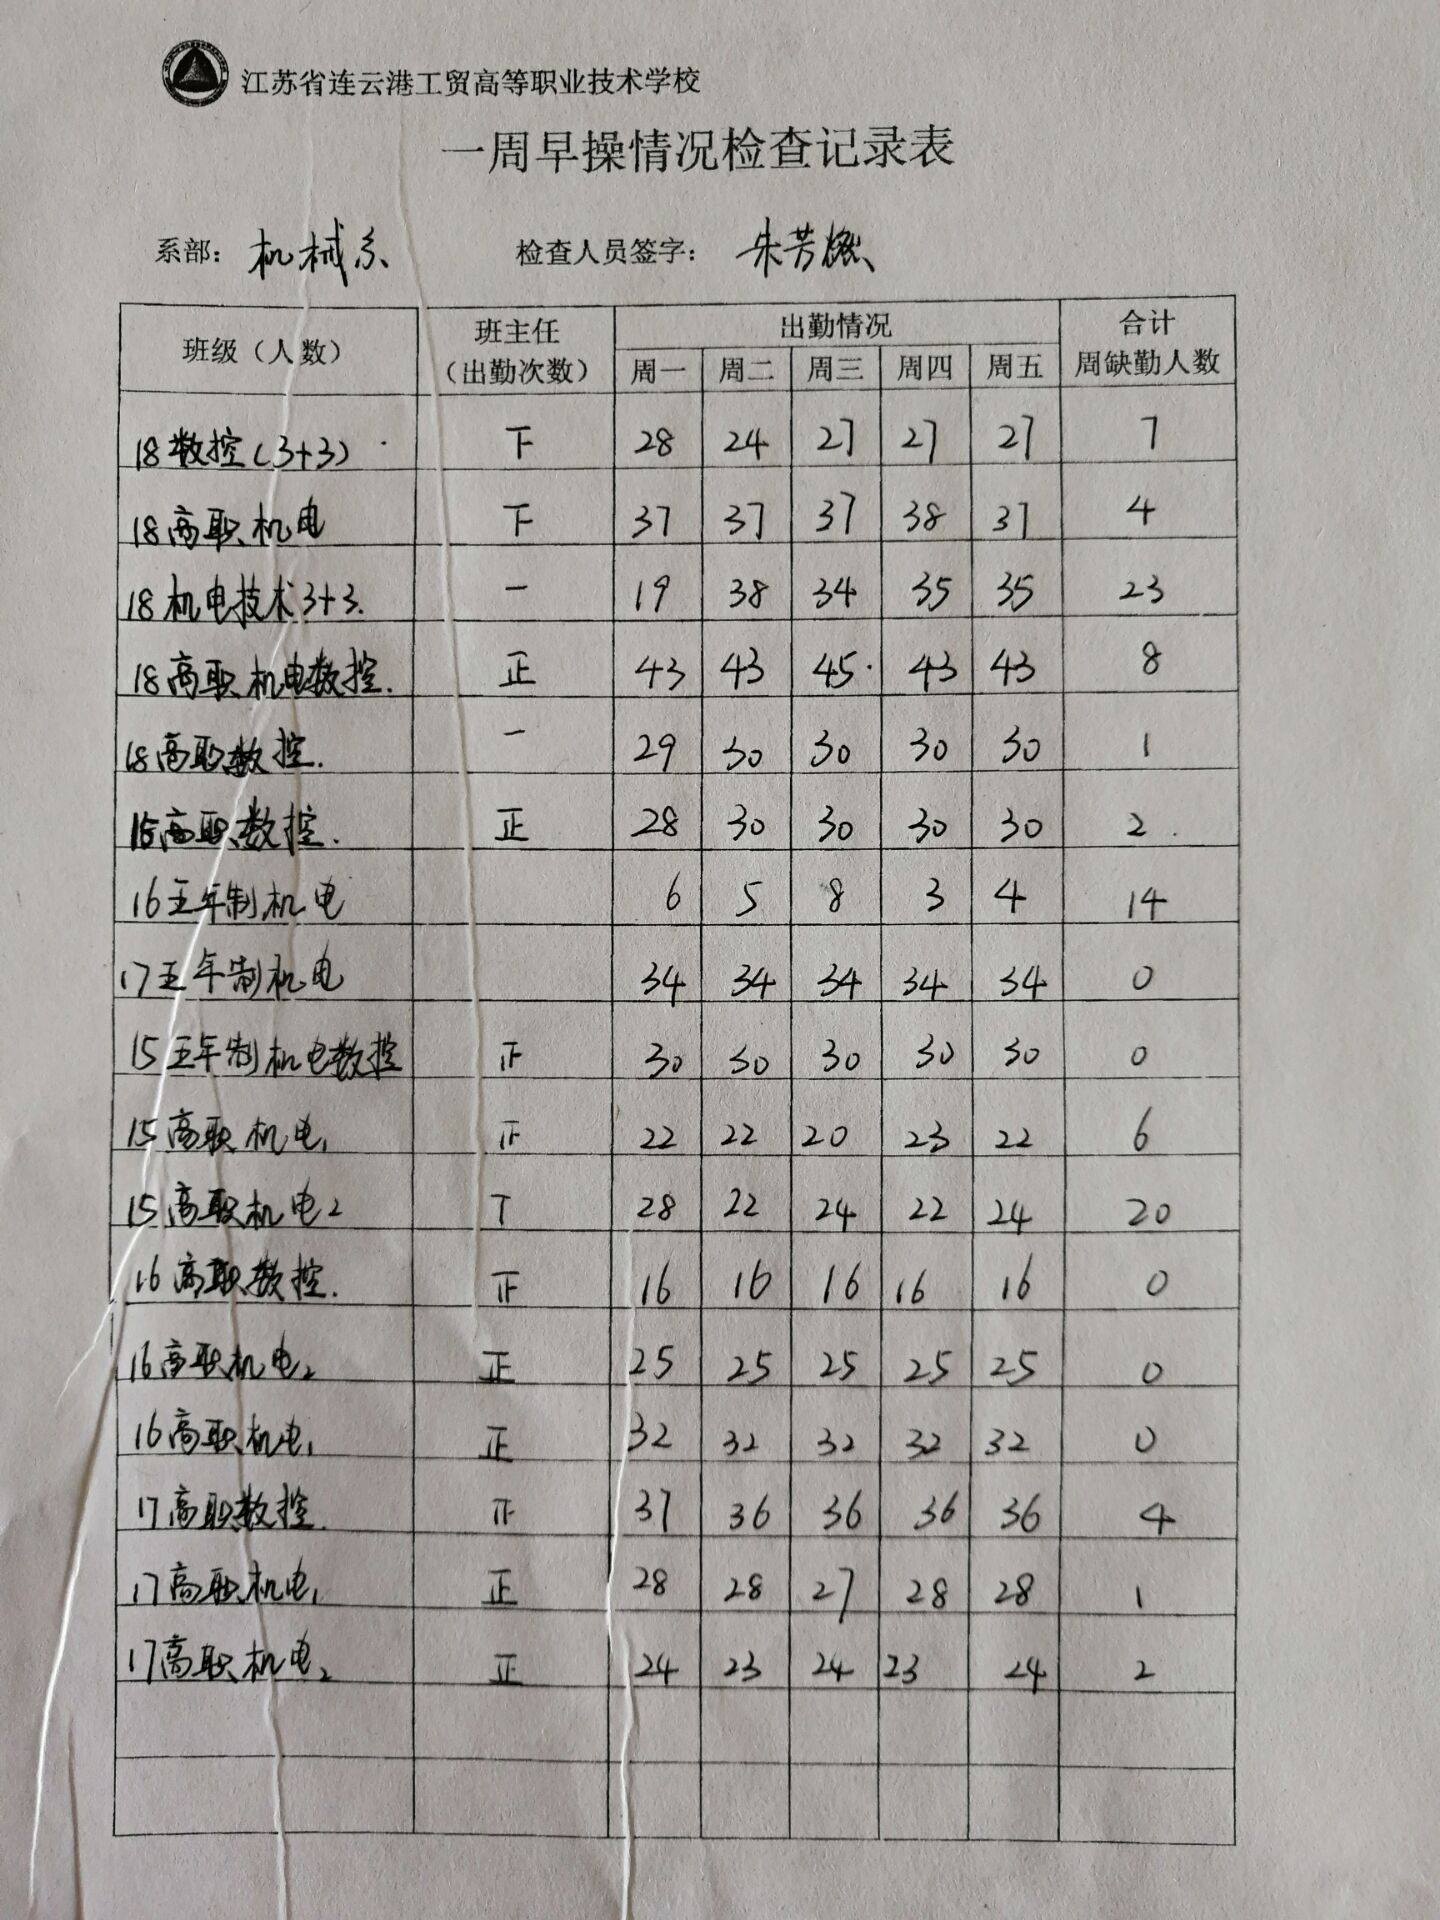 江苏省连云港工贸高等职业技术学校
一周早操情况检查记录表
系部： 机械系 检查人员签字： 朱芳
班级（人数） 班主任（出勤次数） 出勤情况 合计周缺勤人数
周一 周二 周三 周四 周五
18数控(3+3) 下 28 24 27 27 27 7
18高职机电 下 37 37 37 38 37 4
18机电技术3+3. 一 19 38 34 35 35 23
18高职机电数控. 正 43 43 45 43 43 8
18高职数控. 一 29 30 30 30 30 1
高职数控. 正 28 30 30 30 30 2
16五年制机电 6 5 8 3 4 14
17五年制机电 34 34 34 34 34 0
15五年制机电数控 正 30 30 30 30 30 0
15高职机电1 正 22 22 20 23 22 6
15高职机电2 T 28 22 24 22 24 20
16高职数控. 正 16 16 16 16 16 0
16高职机电2 正 25 25 25 25 25 0
16高职机电1 正 32 32 32 32 32 0
17高职数控. 正 37 36 36 36 36 4
17高职机电1 正 28 28 27 28 28 1
17高职机电2 正 24 23 24 23 24 2